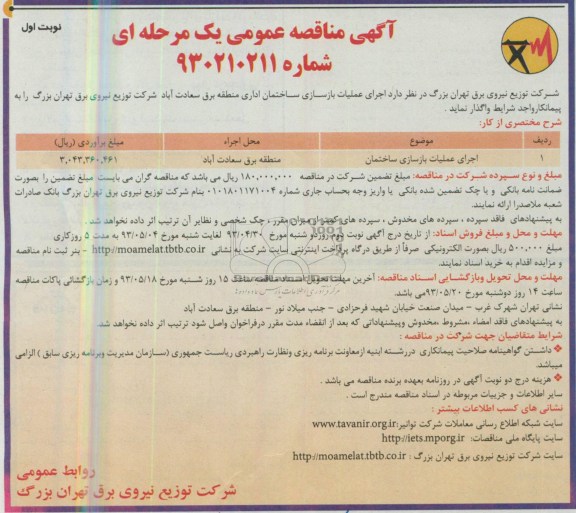 نوبت اول
آگهی مناقصه عمومی یک مرحله ای
شماره ۹۳۰۲۱۰۲۱۱
شرکت توزیع نیروی برق تهران بزرگ در نظر دارد اجرای عملیات بازسازی ساختمان اداری منطقه برق سعادت آباد شرکت توزیع نیروی برق تهران بزرگ را به
پیمانکارواجد شرایط واگذار نماید .
شرح مختصری از کار:
ردیف موضوع محل اجراء مبلغ برآوردی (ریال)
۱ اجرای عملیات بازسازی ساختمان منطقه برق سعادت آباد ۳,۰۴۳,۳۶۰,۴۶۱
مبلغ و نوع سپرده شرکت در مناقصه: مبلغ تضمین شرکت در مناقصه ۱۸۰,۰۰۰,۰۰۰ ریال می باشد که مناقصه گران می بایست مبلغ تضمین را بصورت
ضمانت نامه بانکی و یا چک تضمین شده بانکی یا واریز وجه بحساب جاری شماره ۰۱۰۱۸۰۱۱۷۱۰۰۴ بنام شرکت توزیع نیروی برق تهران بزرگ بانک صادرات
شعبه ملاصدرا ارائه نمایند.
به پیشنهادهای فاقد سپرده ، سپرده های مخدوش ، سپرده های کمتر از میزان مقرر ، چک شخصی و نظایر آن ترتیب اثر داده نخواهد شد .
مهلت و محل و مبلغ فروش اسناد: از تاریخ درج آگهی نوبت دوم روزدو شنبه مورخ ۹۳/۰۴/۳۰ لغایت شنبه مورخ ۹۳/۰۵/۰۴ به مدت ۵ روزکاری
مبلغ ۵۰۰,۰۰۰ ریال بصورت الکترونیکی صرفاً از طریق درگاه پرداخت اینترنتی سایت شرکت به نشانی http://moamelat.tbtb.co.ir - بنر ثبت نام مناقصه
و مزایده اقدام به خرید اسناد نمایند.
مهلت و محل تحویل وبازگشایی اسناد مناقصه: آخرین مهلت تحویل اسناد مناقصه ساعت ۱۵ روز شنبه مورخ ۹۳/۰۵/۱۸ و زمان بازگشائی پاکات مناقصه
ساعت ۱۴ روز دوشنبه مورخ ۹۳/۰۵/۲۰می باشد.
نشانی تهران شهرک غرب - میدان صنعت خیابان شهید فرحزادی - جنب میلاد نور - منطقه برق سعادت آباد
به پیشنهادهای فاقد امضاء ،مشروط ،مخدوش وپیشنهاداتی که بعد از انقضاء مدت مقرر درفراخوان واصل شود ترتیب اثر داده نخواهد شد.
شرایط متقاضیان جهت شرکت در مناقصه :
❖ داشتن گواهینامه صلاحیت پیمانکاری دررشته ابنیه ازمعاونت برنامه ریزی ونظارت راهبردی ریاست جمهوری (سازمان مدیریت وبرنامه ریزی سابق ) الزامی
میباشد.
❖ هزینه درج دو نوبت آگهی در روزنامه بعهده برنده مناقصه می باشد .
سایر اطلاعات و جزییات مربوطه در اسناد مناقصه مندرج است .
نشانی های کسب اطلاعات بیشتر :
سایت شبکه اطلاع رسانی معاملات شرکت توانیر:www.tavanir.org.ir
سایت پایگاه ملی مناقصات: http://iets.mporg.ir
سایت شرکت توزیع نیروی برق تهران بزرگ : http://moamelat.tbtb.co.ir
روابط عمومی
شرکت توزیع نیروی برق تهران بزرگ